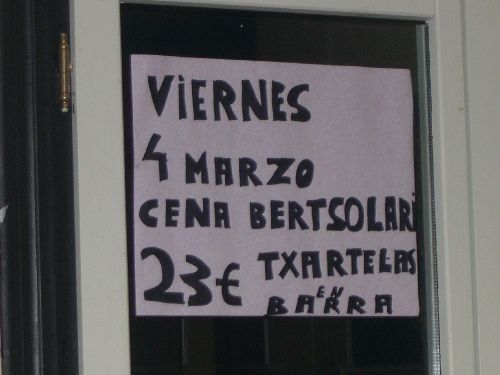 ViERNES
4 MARZO
CENA BERTSOLARi
23€ TXARTELAS
EN
BARRA